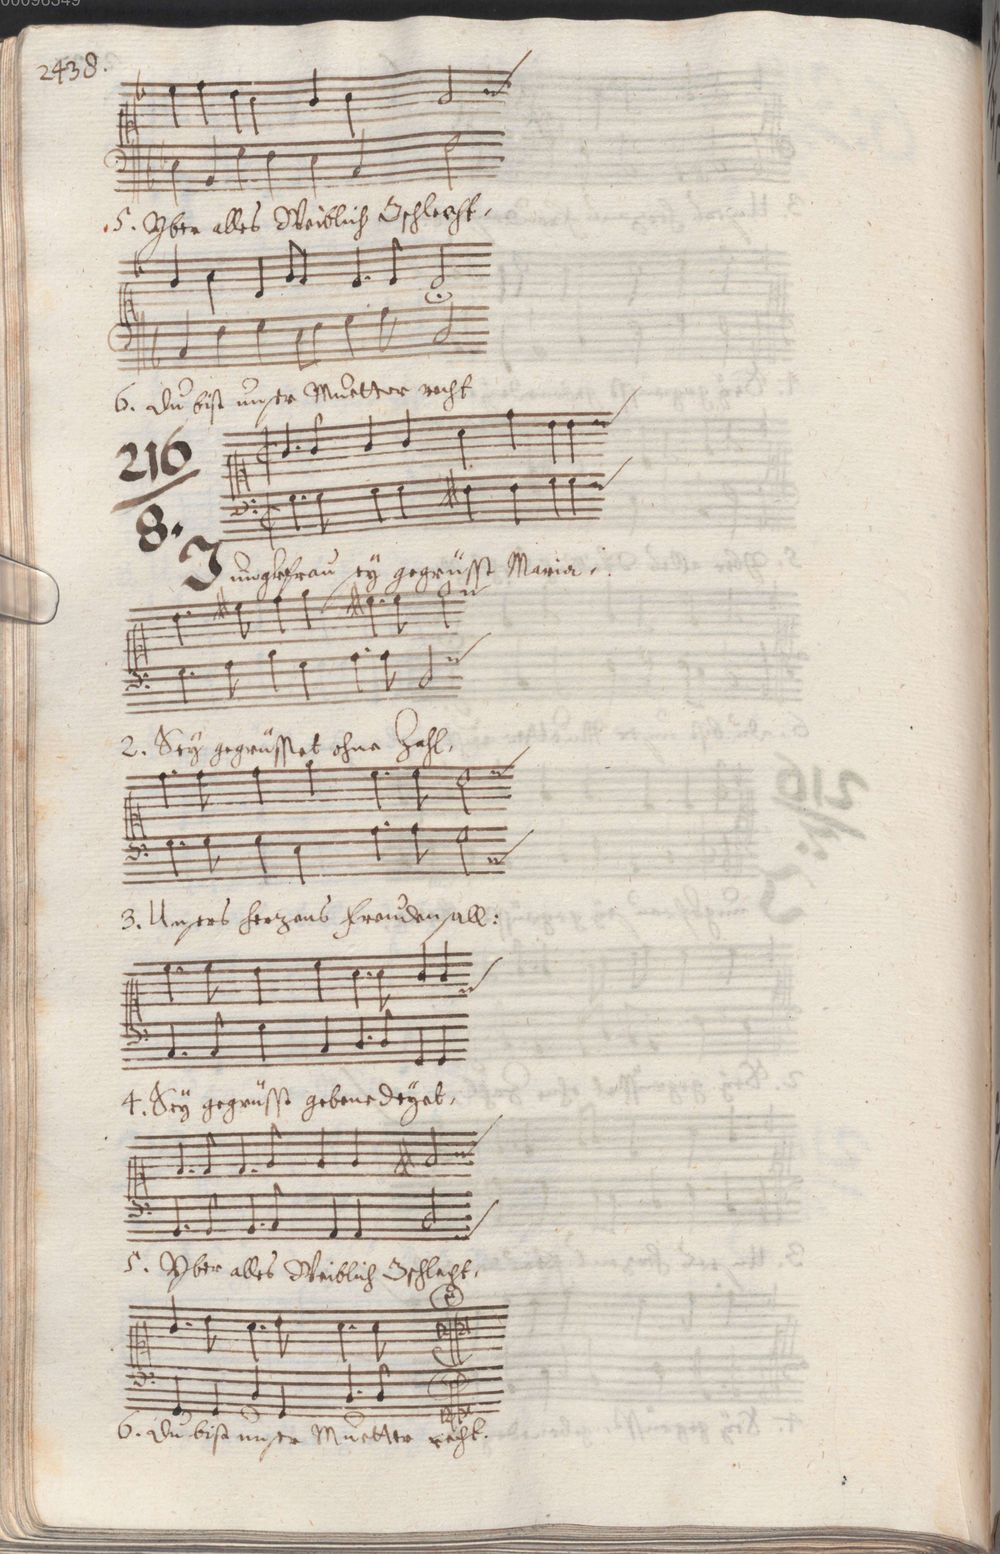 00098349
2438.
5. Yber alles Weiblich Gschlecht,
6. Du bist unser Muetter recht
216
8.
Jungkfrau sey gegrüsst Maria,
2. Sey gegrüsset ohne Zahl,
3. Unsers hertzens freuden sall:
4. Sey gegrüsst gebenedeyet,
5. Yber alles Weiblich Gschlecht,
6. Du bist unser Muetter recht.